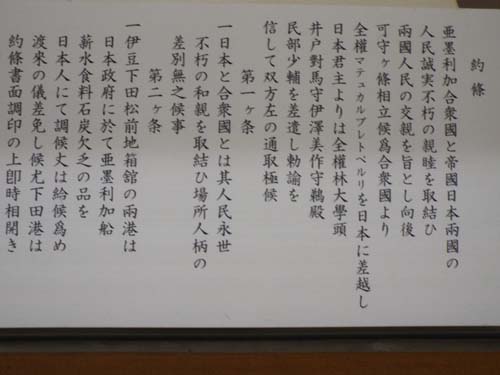 約條
亜墨利加合衆國と帝國日本兩國の
人民誠実不朽の親睦を取結ひ
兩國人民の交親を旨とし向後
可守ヶ條相立候爲合衆國より
全權マテュカルブレトペルリを日本に差越し
日本君主よりは全權林大學頭
井戸對馬守伊澤美作守鵜殿
民部少輔を差遣し勅諭を
信して双方左の通取極候
第一ヶ条
一日本と合衆國とは其人民永世
不朽の和親を取結ひ場所人柄の
差別無之候事
第二ヶ条
一伊豆下田松前地箱館の兩港は
日本政府に於て亜墨利加船
薪水食料石炭欠乏の品を
日本人にて調候丈は給候爲め
渡來の儀差免し候尤下田港は
約條書面調印の上卽時相開き